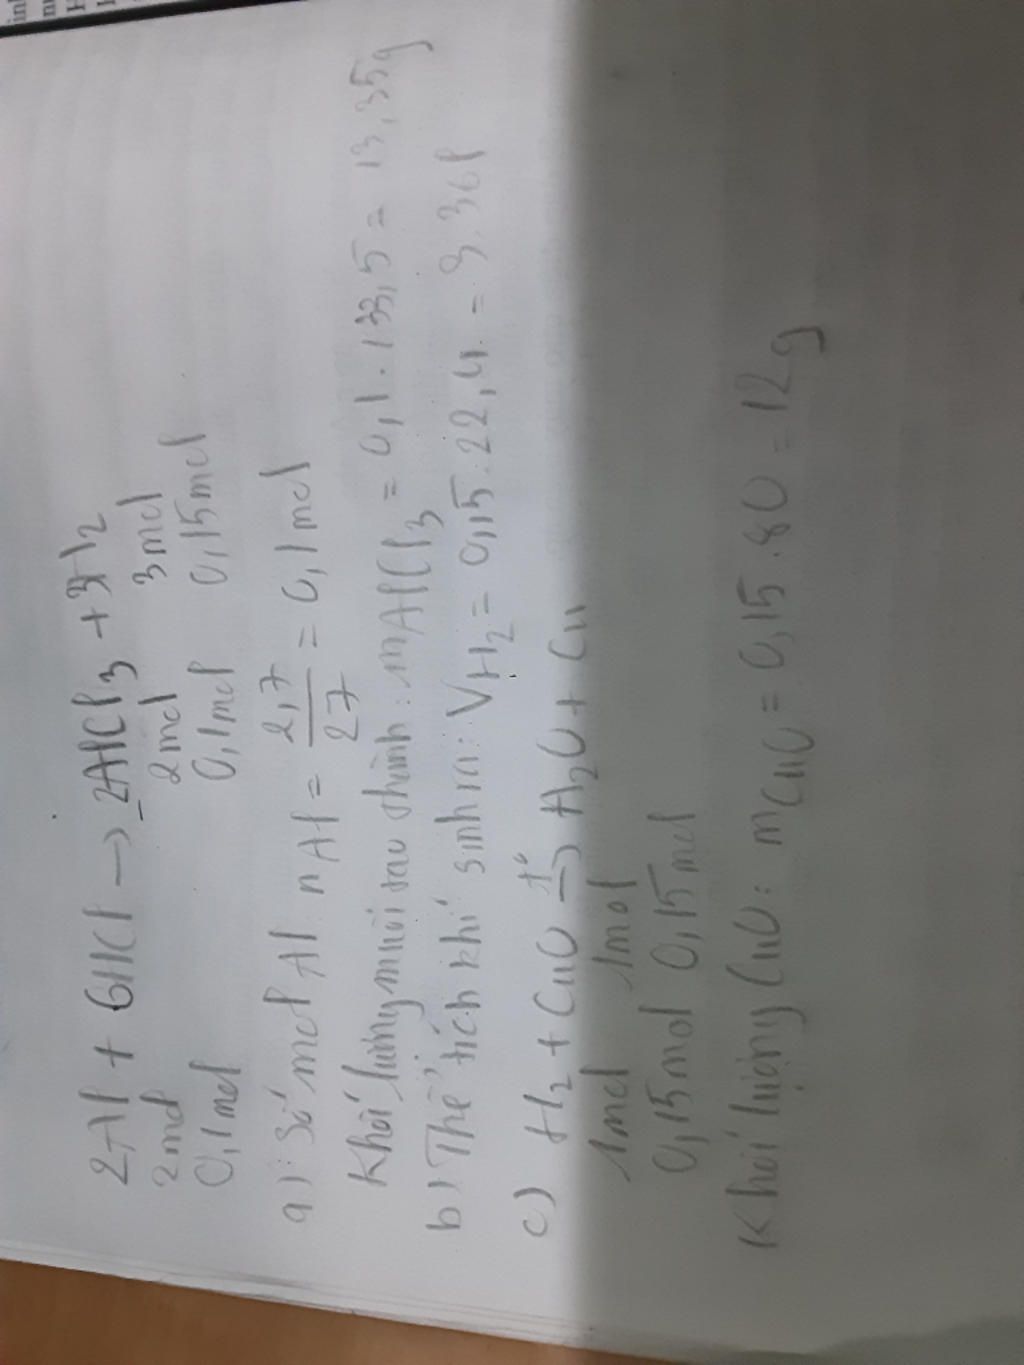 2Al + 6HCl → 2AlCl3 + 3H2
2mol 2mol 3mol
0,1mol 0,1mol 0,15mol
a) Số mol Al nAl = 2,7/27 = 0,1mol
Khối lượng muối tạo thành: mAlCl3 = 0,1.133,5 = 13,35g
b) Thể tích khí sinh ra: VH2 = 0,15.22,4 = 3.36l
c) H2 + CuO t°→ H2O + Cu
1mol 1mol
0,15mol 0,15mol
Khối lượng CuO: mCuO = 0,15.80 = 12g